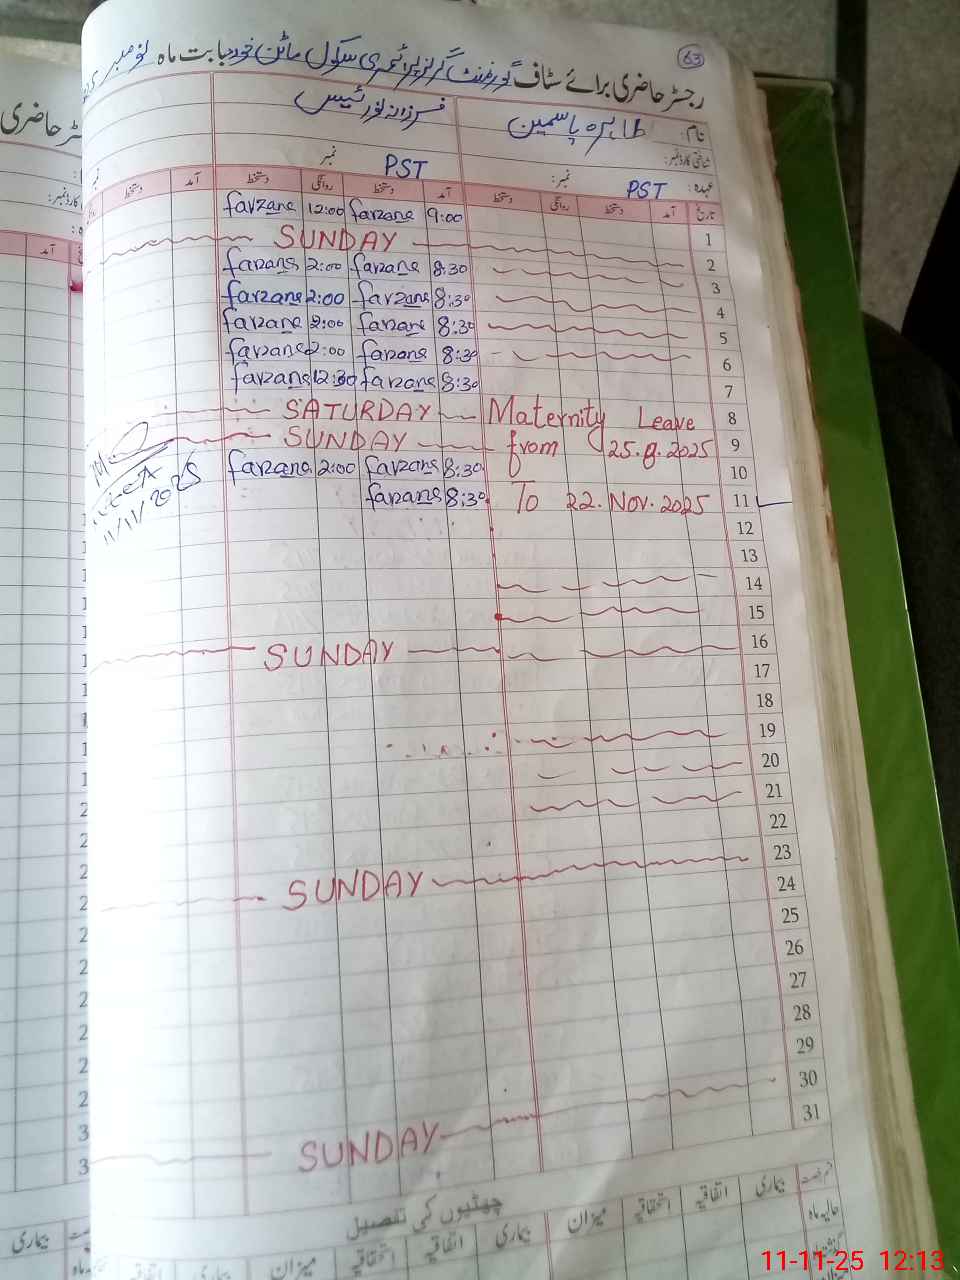 63
رجسٹر حاضری برائے سٹاف گورنمنٹ گرلز پرائمری سکول بابت ماہ نومبر
نام: طاہرہ یاسمین فرزانہ نورئیس
شناختی کارڈ نمبر:
عہدہ: PST نمبر: PST نمبر
تاریخ آمد دستخط روانگی دستخط آمد دستخط روانگی دستخط آمد دستخط
1 9:00 farzane 12:00 farzane
2 SUNDAY
3 8:30 farzane 2:00 farzane
4 8:30 farzane 2:00 farzane
5 8:30 farzane 2:00 farzane
6 8:30 farzane 2:00 farzane
7 8:30 farzane 12:30 farzane
8 Maternity Leave SATURDAY
9 from 25.8.2025 SUNDAY
10 8:30 farzane 2:00 farzane
11 To 22.Nov.2025 8:30 farzane
11/11/2025
12
13
14
15
16 SUNDAY
17
18
19
20
21
22
23 SUNDAY
24
25
26
27
28
29
30 SUNDAY
31
چھٹیوں کی تفصیل
بیماری اتفاقیہ استحقاقیہ میزان بیماری اتفاقیہ استحقاقیہ میزان بیماری
حالیہ ماہ
11-11-25 12:13